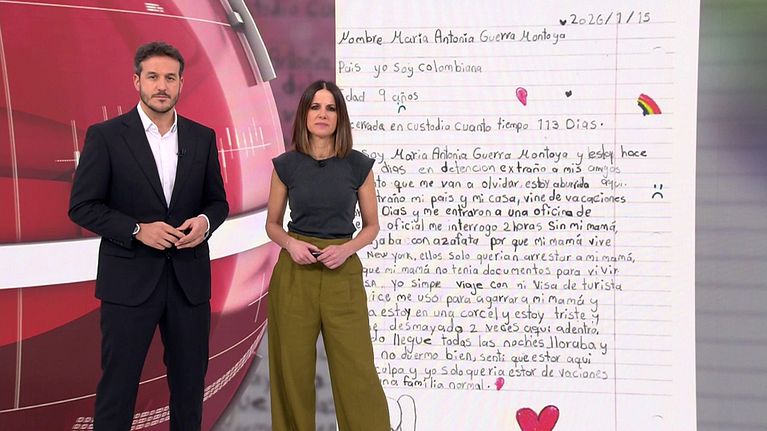 2026/1/15
Nombre Maria Antonia Guerra Montoya
Pais yo soy colombiana
Edad 9 años
cerrada en custodia cuanto tiempo 113 Dias.
soy Maria Antonia Guerra Montoya y estoy hace
dias en detencion extraño a mis amigos
to que me van a olvidar. estoy aburida aqui.
traño mi pais y mi casa, vine de vacaciones
Dias y me entraron a una oficina de
oficial me interrogo 2 horas sin mi mamá,
jaba con azafata por que mi mamá vive
New York, ellos solo querian arrestar a mi mamá,
que mi mamá no tenia documentos para vivir
SA. yo simple viaje con mi visa de turista
ice me uso para agarrar a mi mamá y
a estoy en una carcel y estoy triste y
e desmayado 2 veces aqui adentro,
do llegue todas las noches lloraba y
no duermo bien, senti que estar aqui
culpa y yo solo queria estar de vaciones
una familia normal.